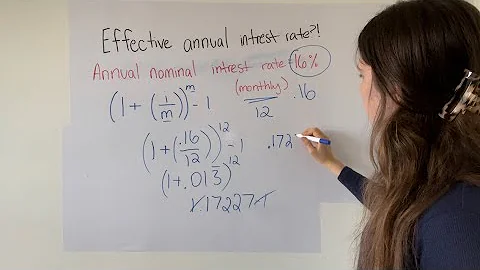 Effective annual intrest rate?!
Annual nominal intrest rate=16%
(1+(i/m))^m-1
(monthly)
12
.16
(1+(.16/12))^12-1
.172
(1+.013̅)^12
1.17227-1